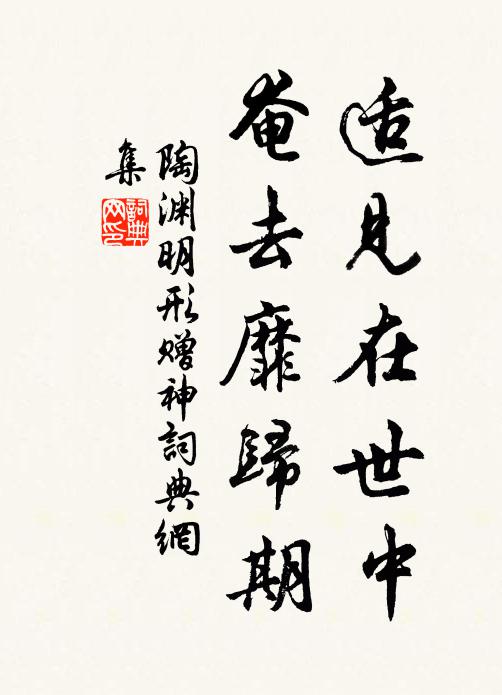 适見在世中
奄去靡歸期
陶渊明形赠神詞典網
集
詞典
网印